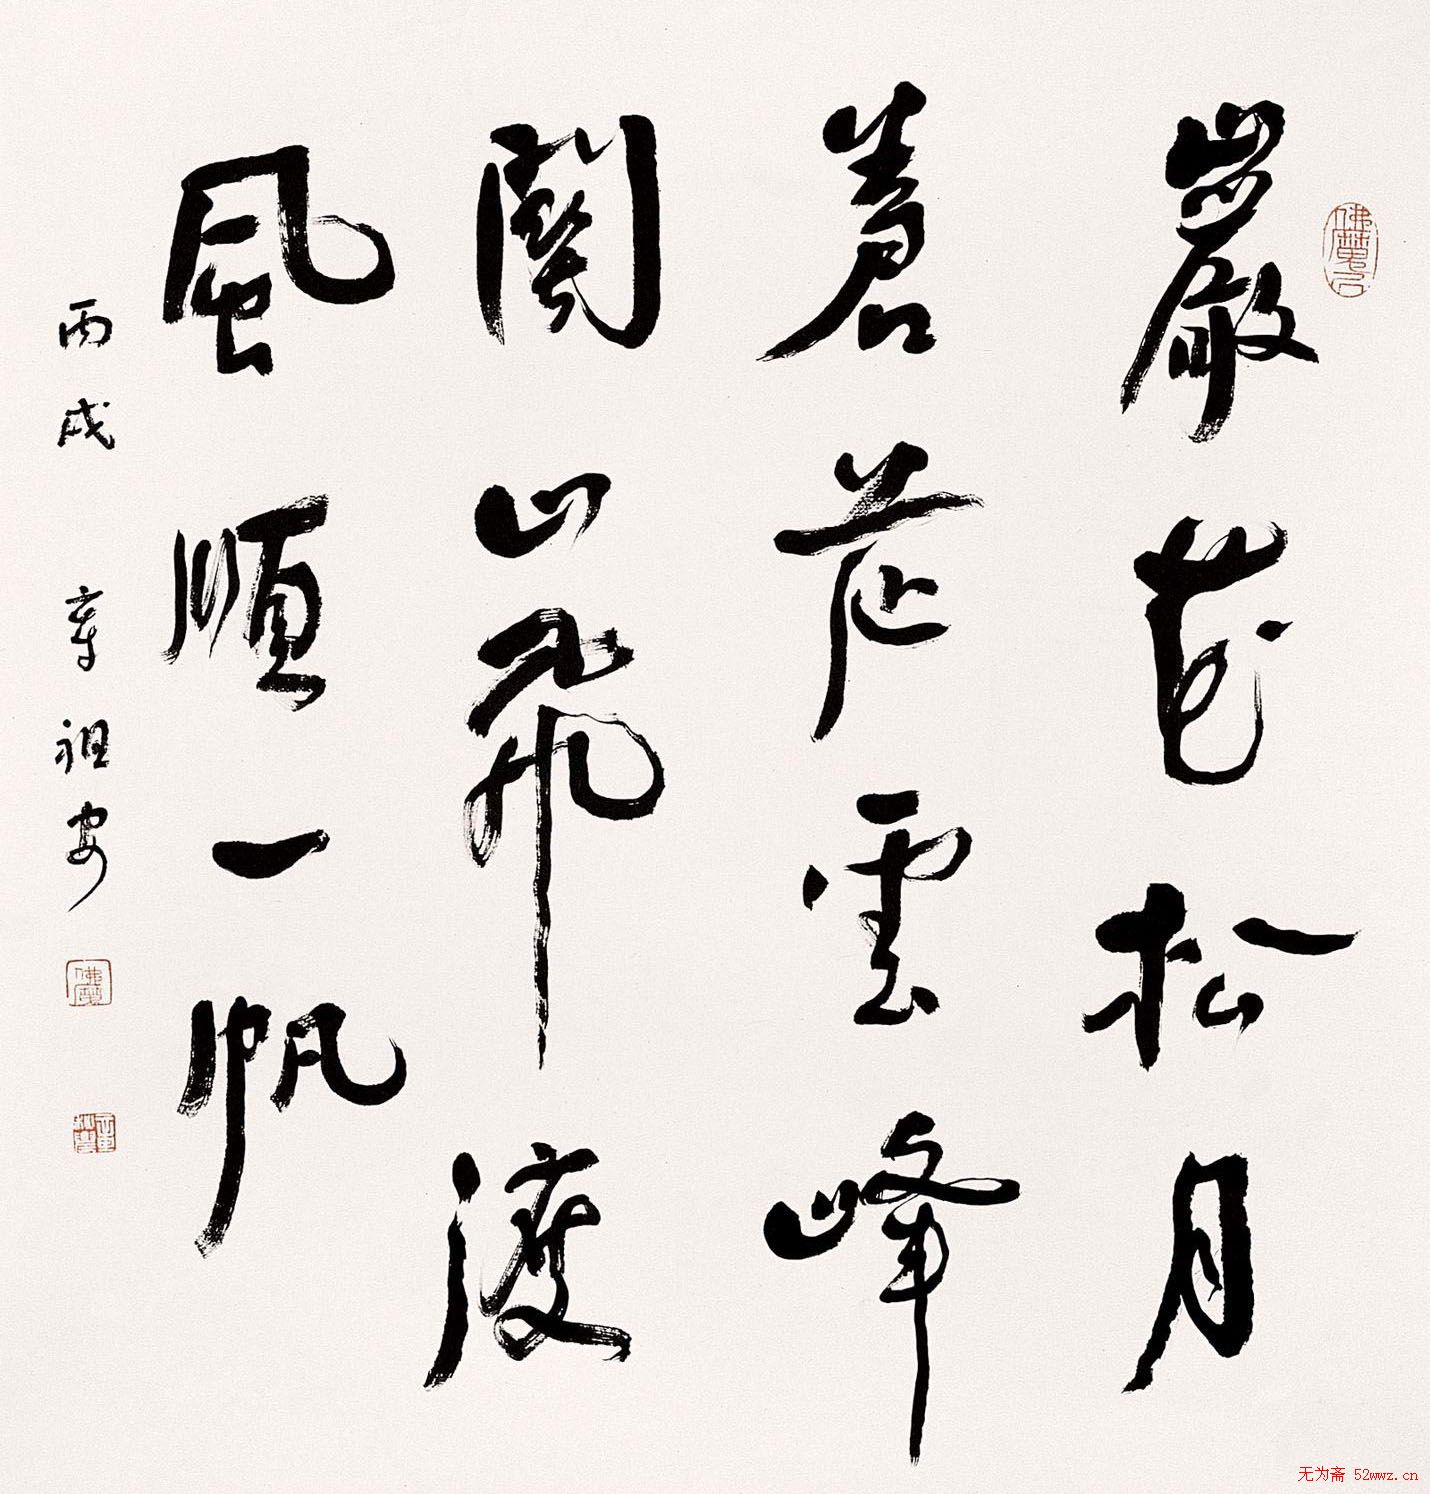 巖花松月
蒼茫雲峰
關山飛渡
風順一帆
丙戌 章祖安
无为斋 52wwz.cn